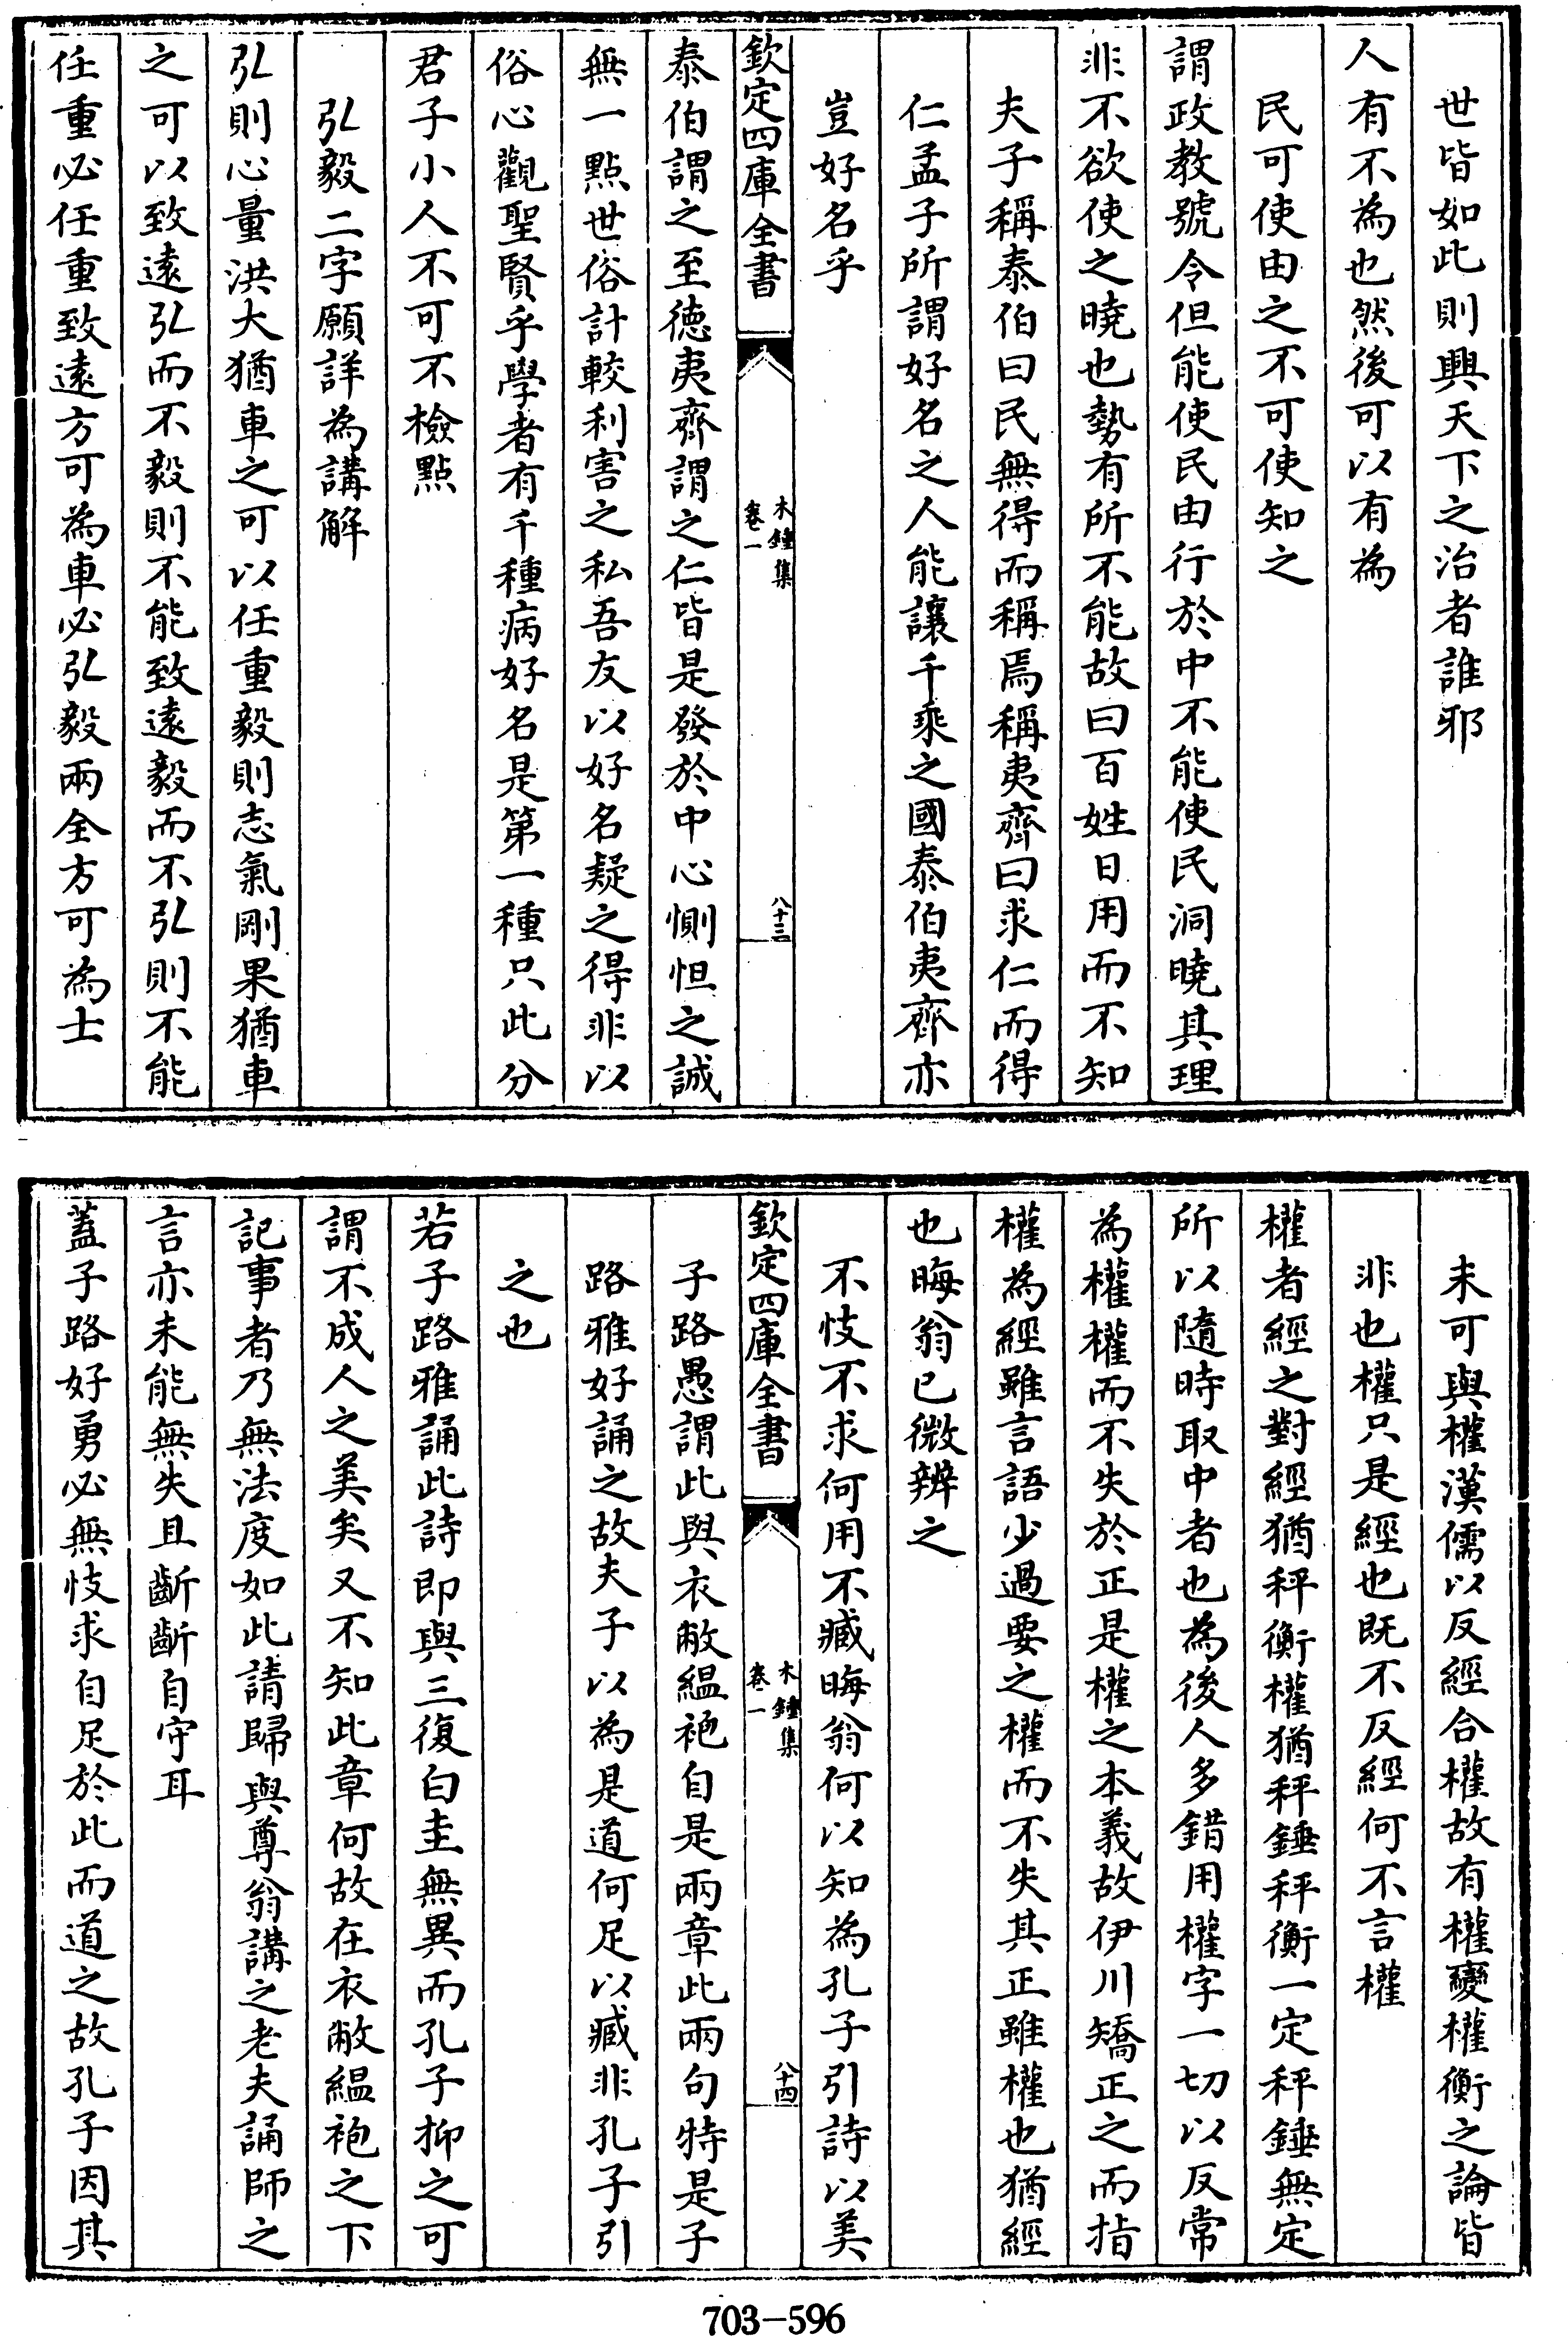 世皆如此則興天下之治者誰邪
人有不為也然後可以有為
民可使由之不可使知之
謂政教號令但能使民由行於中不能使民洞曉其理
非不欲使之曉也勢有所不能故曰百姓日用而不知
夫子稱泰伯曰民無得而稱焉稱夷齊曰求仁而得
仁孟子所謂好名之人能讓千乘之國泰伯夷齊亦
豈好名乎
欽定四庫全書
木鍾集
卷一
八十三
泰伯謂之至德夷齊謂之仁皆是發於中心惻怛之誠
無一點世俗計較利害之私吾友以好名疑之得非以
俗心觀聖賢乎學者有千種病好名是第一種只此分
君子小人不可不檢點
弘毅二字願詳為講解
弘則心量洪大猶車之可以任重毅則志氣剛果猶車
之可以致遠弘而不毅則不能致遠毅而不弘則不能
任重必任重致遠方可為車必弘毅兩全方可為士
未可與權漢儒以反經合權故有權變權衡之論皆
非也權只是經也既不反經何不言權
權者經之對經猶秤衡權猶秤錘秤衡一定秤錘無定
所以隨時取中者也為後人多錯用權字一切以反常
為權權而不失於正是權之本義故伊川矯正之而指
權為經雖言語少過要之權而不失其正雖權也猶經
也晦翁已微辨之
不忮不求何用不臧晦翁何以知為孔子引詩以美
欽定四庫全書
木鍾集
卷一
八十四
子路愚謂此與衣敝緼袍自是兩章此兩句特是子
路雅好誦之故夫子以為是道何足以臧非孔子引
之也
若子路雅誦此詩即與三復白圭無異而孔子抑之可
謂不成人之美矣又不知此章何故在衣敝緼袍之下
記事者乃無法度如此請歸與尊翁講之老夫誦師之
言亦未能無失且齗齗自守耳
蓋子路好勇必無忮求自足於此而道之故孔子因其
703-596